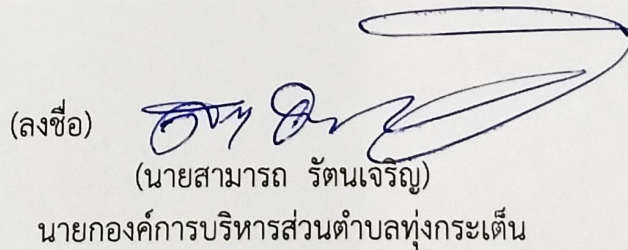 (ลงชื่อ)
(นายสามารถ รัตนเจริญ)
นายกองค์การบริหารส่วนตำบลทุ่งกระเต็น